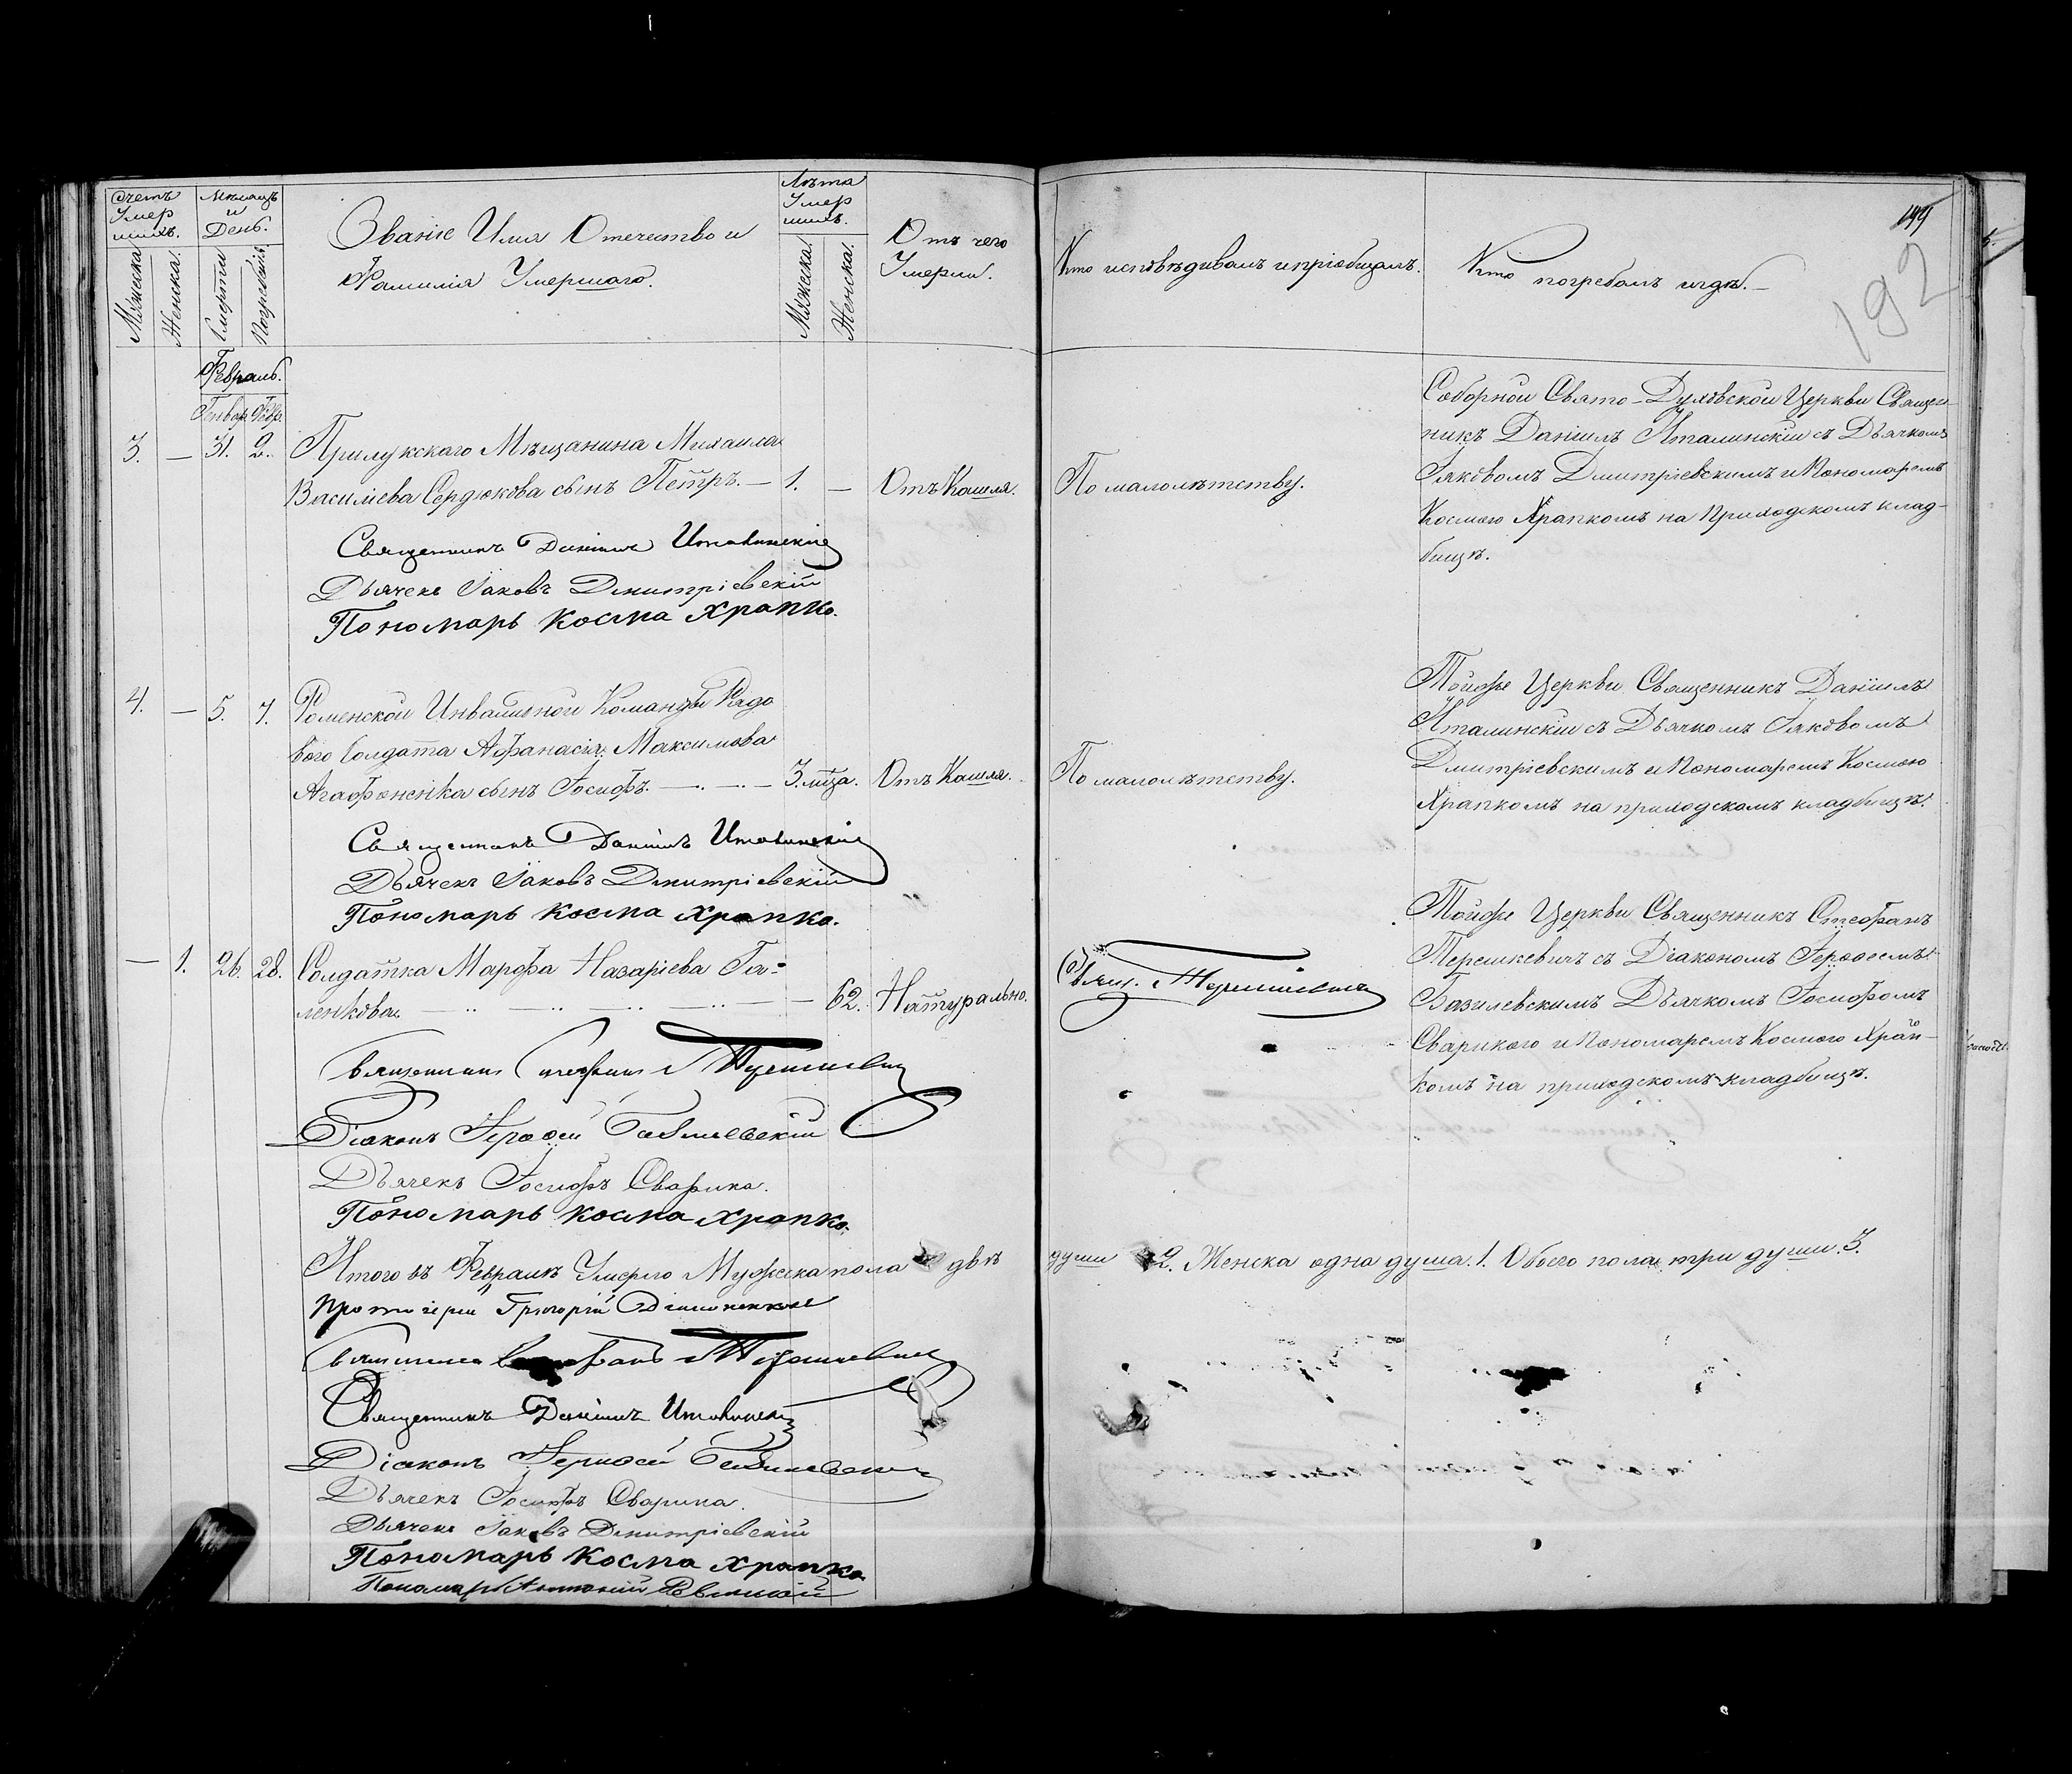 Счетъ
Умер
шихъ.
Мѣсяцъ
и
День.
Званіе Имя Отечество и
Фамилія Умершаго.
Лѣта
Умер
шихъ.
Отъ чего
Умерли.
Мужеска.
Женска.
Смерти
Погребенія
Мужеска.
Женска.
Кто исповѣдивалъ и пріобщалъ.
Кто погребалъ и гдѣ.
199
192
Февраль.
Генвар. Февр.
3. — 31. 2. Прилукскаго Мѣщанина Михаила
Василіева Сердюкова сынъ Петръ. — 1. — Отъ Кашля. По малолѣтству.
Соборной Свято-Духовской Церкви Священ-
никъ Даніилъ Италинскій съ Дьячкомъ
Іяковомъ Дмитріевскимъ и Пономаремъ
Космою Храпкомъ на Приходскомъ клад-
бищѣ.
Священникъ Даніилъ Италинскій
Дьячекъ Іаковъ Дмитріевскій
Пономарь Косма Храпко.
4. — 5. 7. Роменской Инвалидной Команды Рядо
вого Солдата Афанасія Максимова
Агафоненка сынъ Іосифъ. — 3. мца. Отъ Кашля. По малолѣтству.
Тойже Церкви Священникъ Даніилъ
Италинскій съ Дьячкомъ Іяковомъ
Дмитріевскимъ и Пономаремъ Космою
Храпкомъ на приходскомъ кладбищѣ.
Священникъ Даніилъ Италинскій
Дьячекъ Іаковъ Дмитріевскій
Пономарь Косма Храпко.
— 1. 26. 28. Солдатка Марфа Назаріева Га-
ленкова. — 62. Натурально. Свящ. Терешкевичъ
Тойже Церкви Священникъ Стефанъ
Терешкевичъ съ Діакономъ Іерофеемъ
Базилевскимъ Дьячкомъ Іосифомъ
Сварикою и Пономаремъ Космою Храп-
комъ на приходскомъ кладбищѣ.
Священникъ Стефанъ Терешкевичъ
Діаконъ Іерофей Базилевскій
Дьячекъ Іосифъ Сварика.
Пономарь Косма Храпко.
Итого въ Февралѣ Умерло Мужеска пола двѣ души 2. Женска одна душа. 1. Обоего пола три души. 3.
Протоіерей Григорій
Священникъ Стефанъ Терешкевичъ
Священникъ Даніилъ Италинскій
Діаконъ Іерофей Базилевскій
Дьячекъ Іосифъ Сварика.
Дьячекъ Іаковъ Дмитріевскій
Пономарь Косма Храпко
Пономарь Антоній